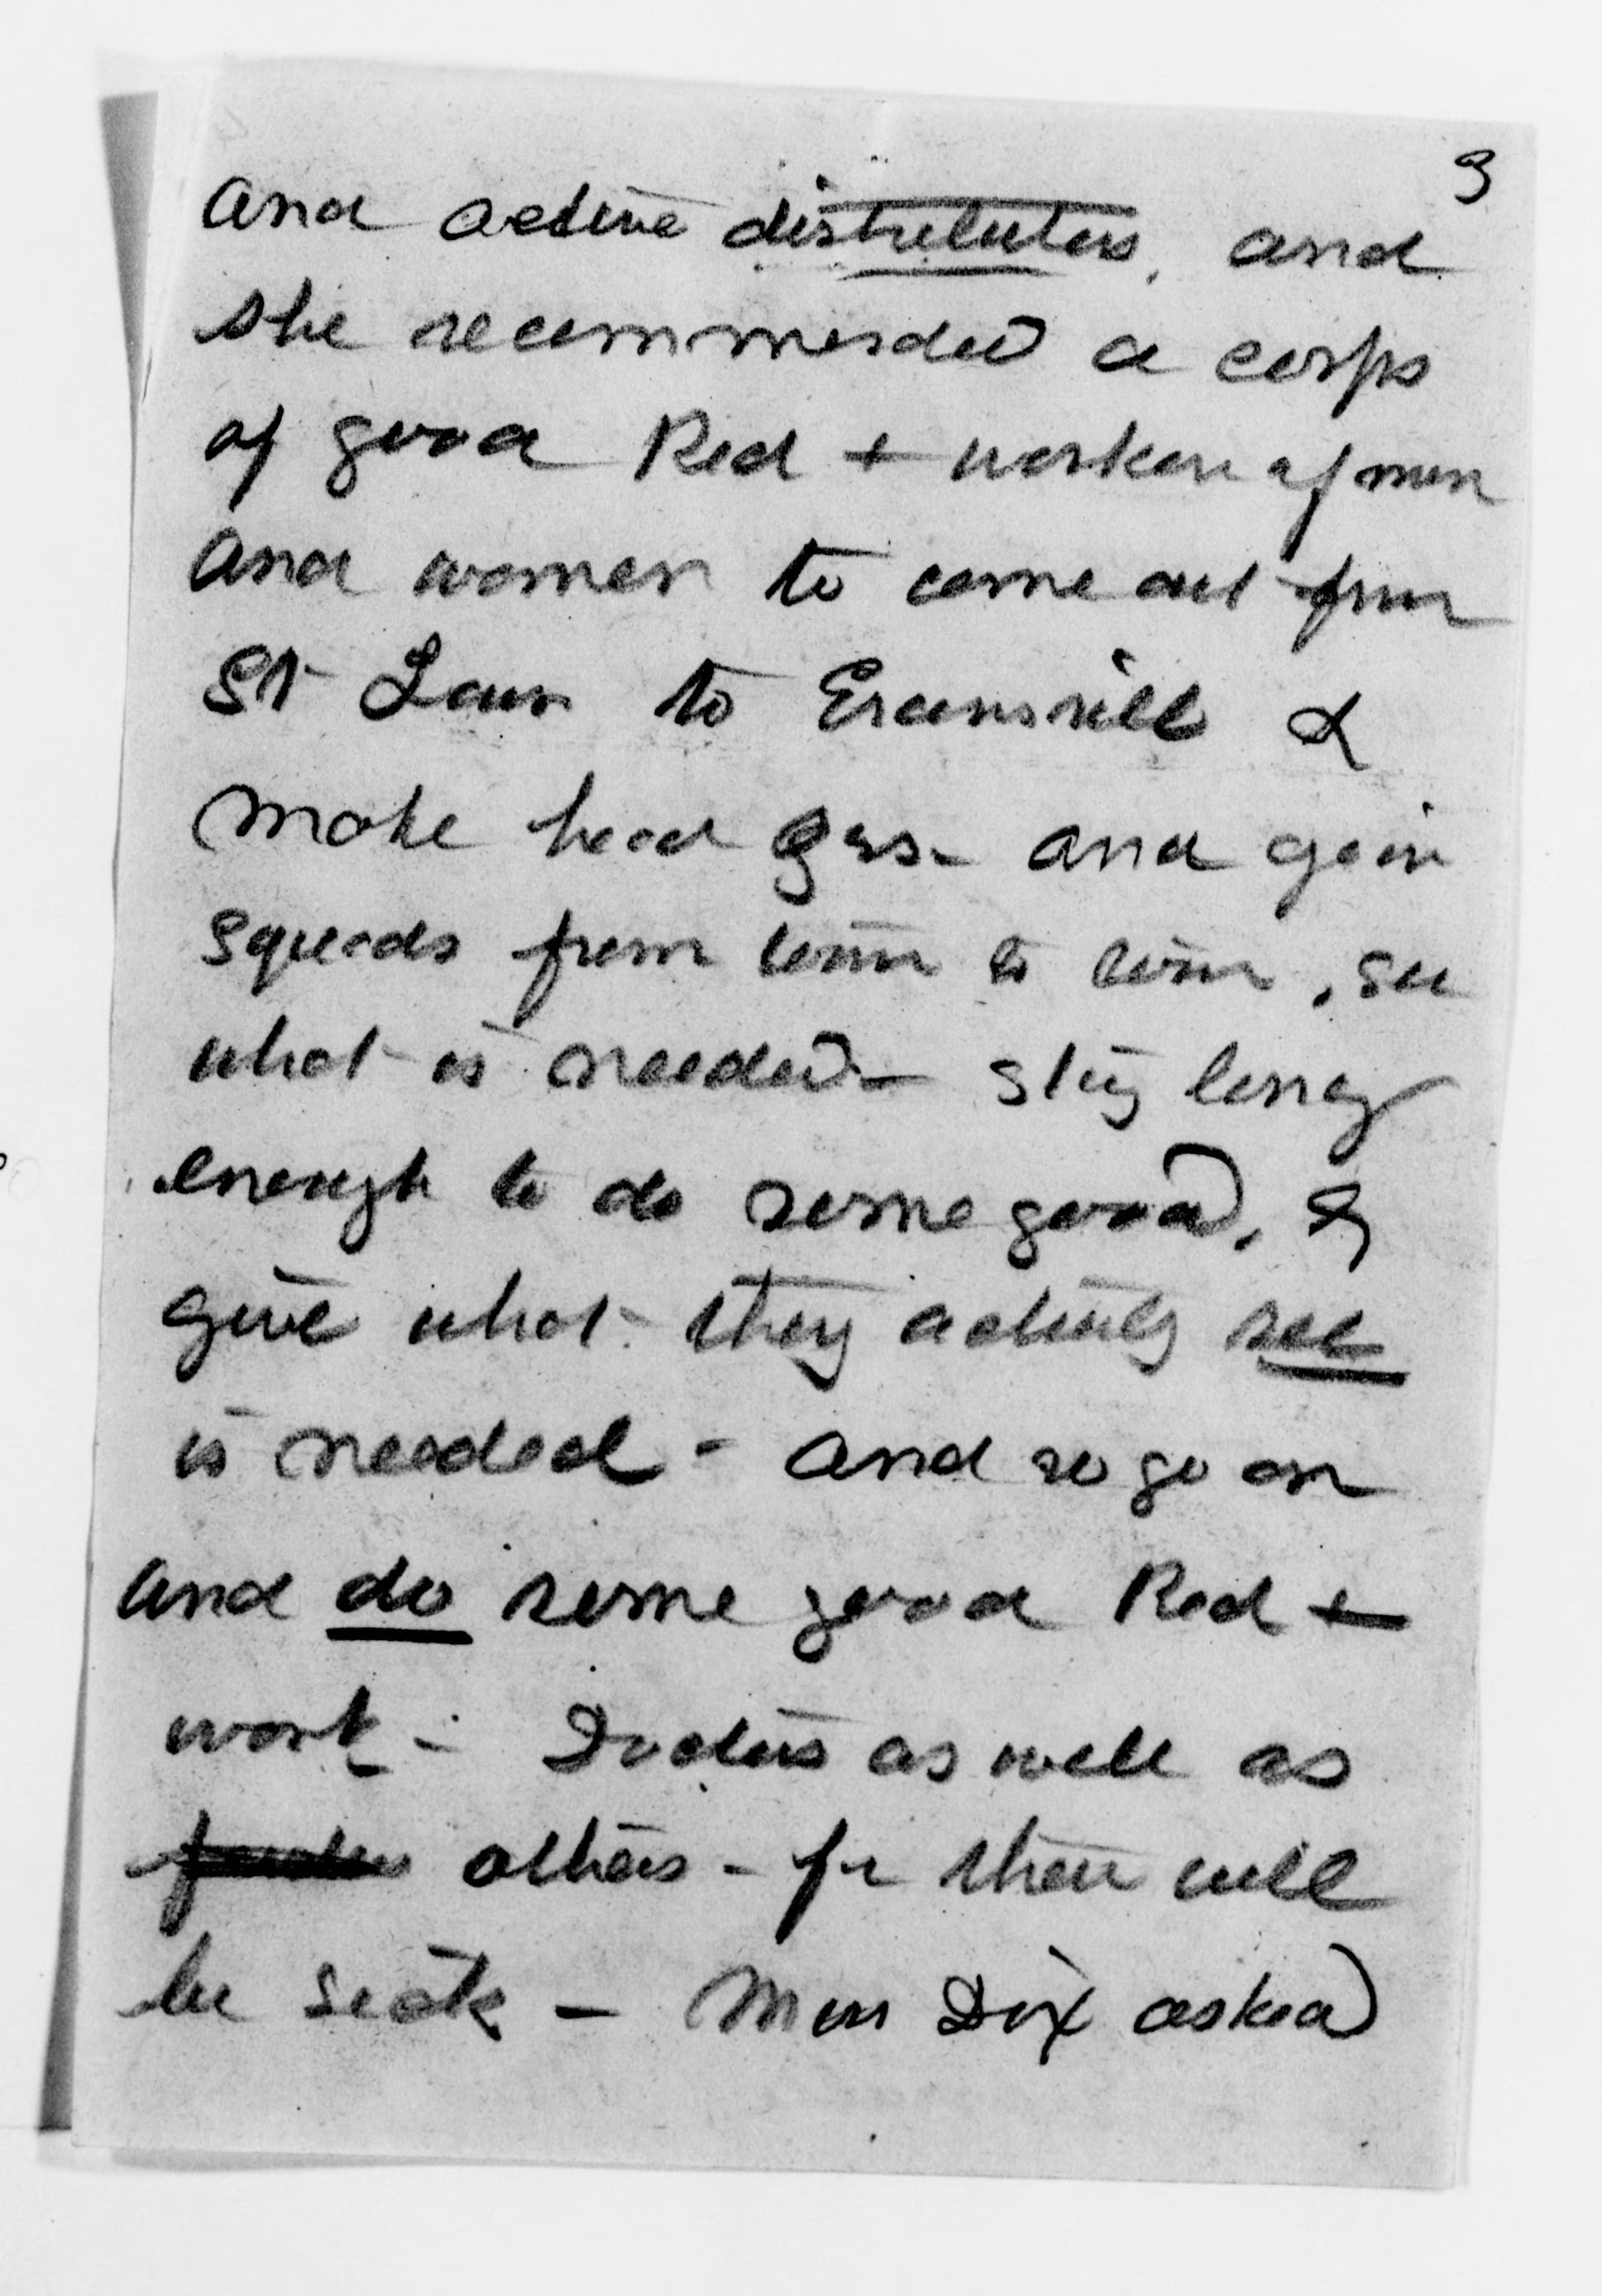 3
and active distributers, and
she recommended a corps
of good Red + workers of men
and women to come out from
St Louis to Evansvill &
make head qrs - and go in
squads from town to town, see
what is needed - stay long
enough to do some good, &
give what they actually see
is needed - and so go on
and do some good Red +
work - Doctors as well as
others - for there will
be sick - Miss Dix asked